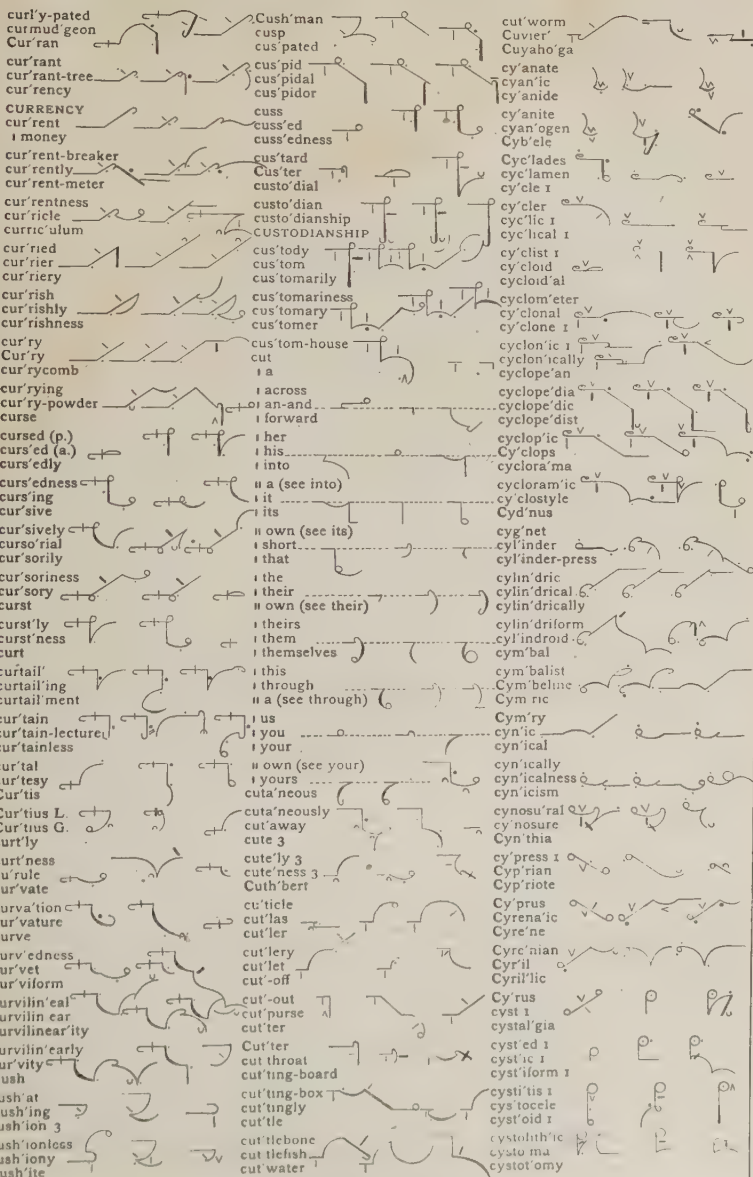 curl'y-pated
curmud'geon
Cur'ran
cur'rant
cur'rant-tree
cur'rency
CURRENCY
cur'rent
ı money
cur'rent-breaker
cur'rently
cur'rent-meter
cur'rentness
cur'ricle
curric'ulum
cur'ried
cur'rier
cur'riery
cur'rish
cur'rishly
cur'rishness
cur'ry
Cur'ry
cur'rycomb
cur'rying
cur'ry-powder
curse
cursed (p.)
curs'ed (a.)
curs'edly
curs'edness
curs'ing
cur'sive
cur'sively
curso'rial
cur'sorily
cur'soriness
cur'sory
curst
curst'ly
curst'ness
curt
curtail'
curtail'ing
curtail'ment
cur'tain
cur'tain-lecture
cur'tainless
cur'tal
cur'tesy
Cur'tis
Cur'tius L.
Cur'tius G.
curt'ly
curt'ness
cu'rule
cur'vate
curva'tion
cur'vature
curve
curv'edness
cur'vet
cur'viform
curvilin'eal
curvilin ear
curvilinear'ity
curvilin'early
cur'vity
cush
cush'at
cush'ing
cush'ion 3
cush'ionless
cush'iony
cush'ite
Cush'man
cusp
cus'pated
cus'pid
cus'pidal
cus'pidor
cuss
cuss'ed
cuss'edness
cus'tard
Cus'ter
custo'dial
custo'dian
custo'dianship
CUSTODIANSHIP
cus'tody
cus'tom
cus'tomarily
cus'tomariness
cus'tomary
cus'tomer
cus'tom-house
cut
ı a
ı across
ı an-and
ı forward
ı her
ı his
ı into
ıı a (see into)
ı it
ı its
ıı own (see its)
ı short
ı that
ı the
ı their
ıı own (see their)
ı theirs
ı them
ı themselves
ı this
ı through
ıı a (see through)
ı us
ı you
ı your
ıı own (see your)
ı yours
cuta'neous
cuta'neously
cut'away
cute 3
cute'ly 3
cute'ness 3
Cuth'bert
cu'ticle
cut'las
cut'ler
cut'lery
cut'let
cut'-off
cut'-out
cut'purse
cut'ter
Cut'ter
cut throat
cut'ting-board
cut'ting-box
cut'tingly
cut'tle
cut'tlebone
cut tlefish
cut'water
cut'worm
Cuvier'
Cuyaho'ga
cy'anate
cyan'ic
cy'anide
cy'anite
cyan'ogen
Cyb'ele
Cyc'lades
cyc'lamen
cy'cle 1
cy'cler
cyc'lic 1
cyc'lical 1
cy'clist 1
cy'cloid
cycloid'al
cyclom'eter
cy'clonal
cy'clone 1
cyclon'ic 1
cyclon'ically
cyclope'an
cyclope'dia
cyclope'dic
cyclope'dist
cyclop'ic
Cy'clops
cyclora'ma
cycloram'ic
cy'clostyle
Cyd'nus
cyg'net
cyl'inder
cyl'inder-press
cylin'dric
cylin'drical
cylin'drically
cylin'driform
cyl'indroid
cym'bal
cym'balist
Cym'beline
Cym ric
Cym'ry
cyn'ic
cyn'ical
cyn'ically
cyn'icalness
cyn'icism
cynosu'ral
cy'nosure
Cyn'thia
cy'press 1
Cyp'rian
Cyp'riote
Cy'prus
Cyrena'ic
Cyre'ne
Cyre'nian
Cyr'il
Cyril'lic
Cy'rus
cyst 1
cystal'gia
cyst'ed 1
cyst'ic 1
cyst'iform 1
cysti'tis 1
cys'tocele
cyst'oid 1
cystolith'ic
cysto'ma
cystot'omy